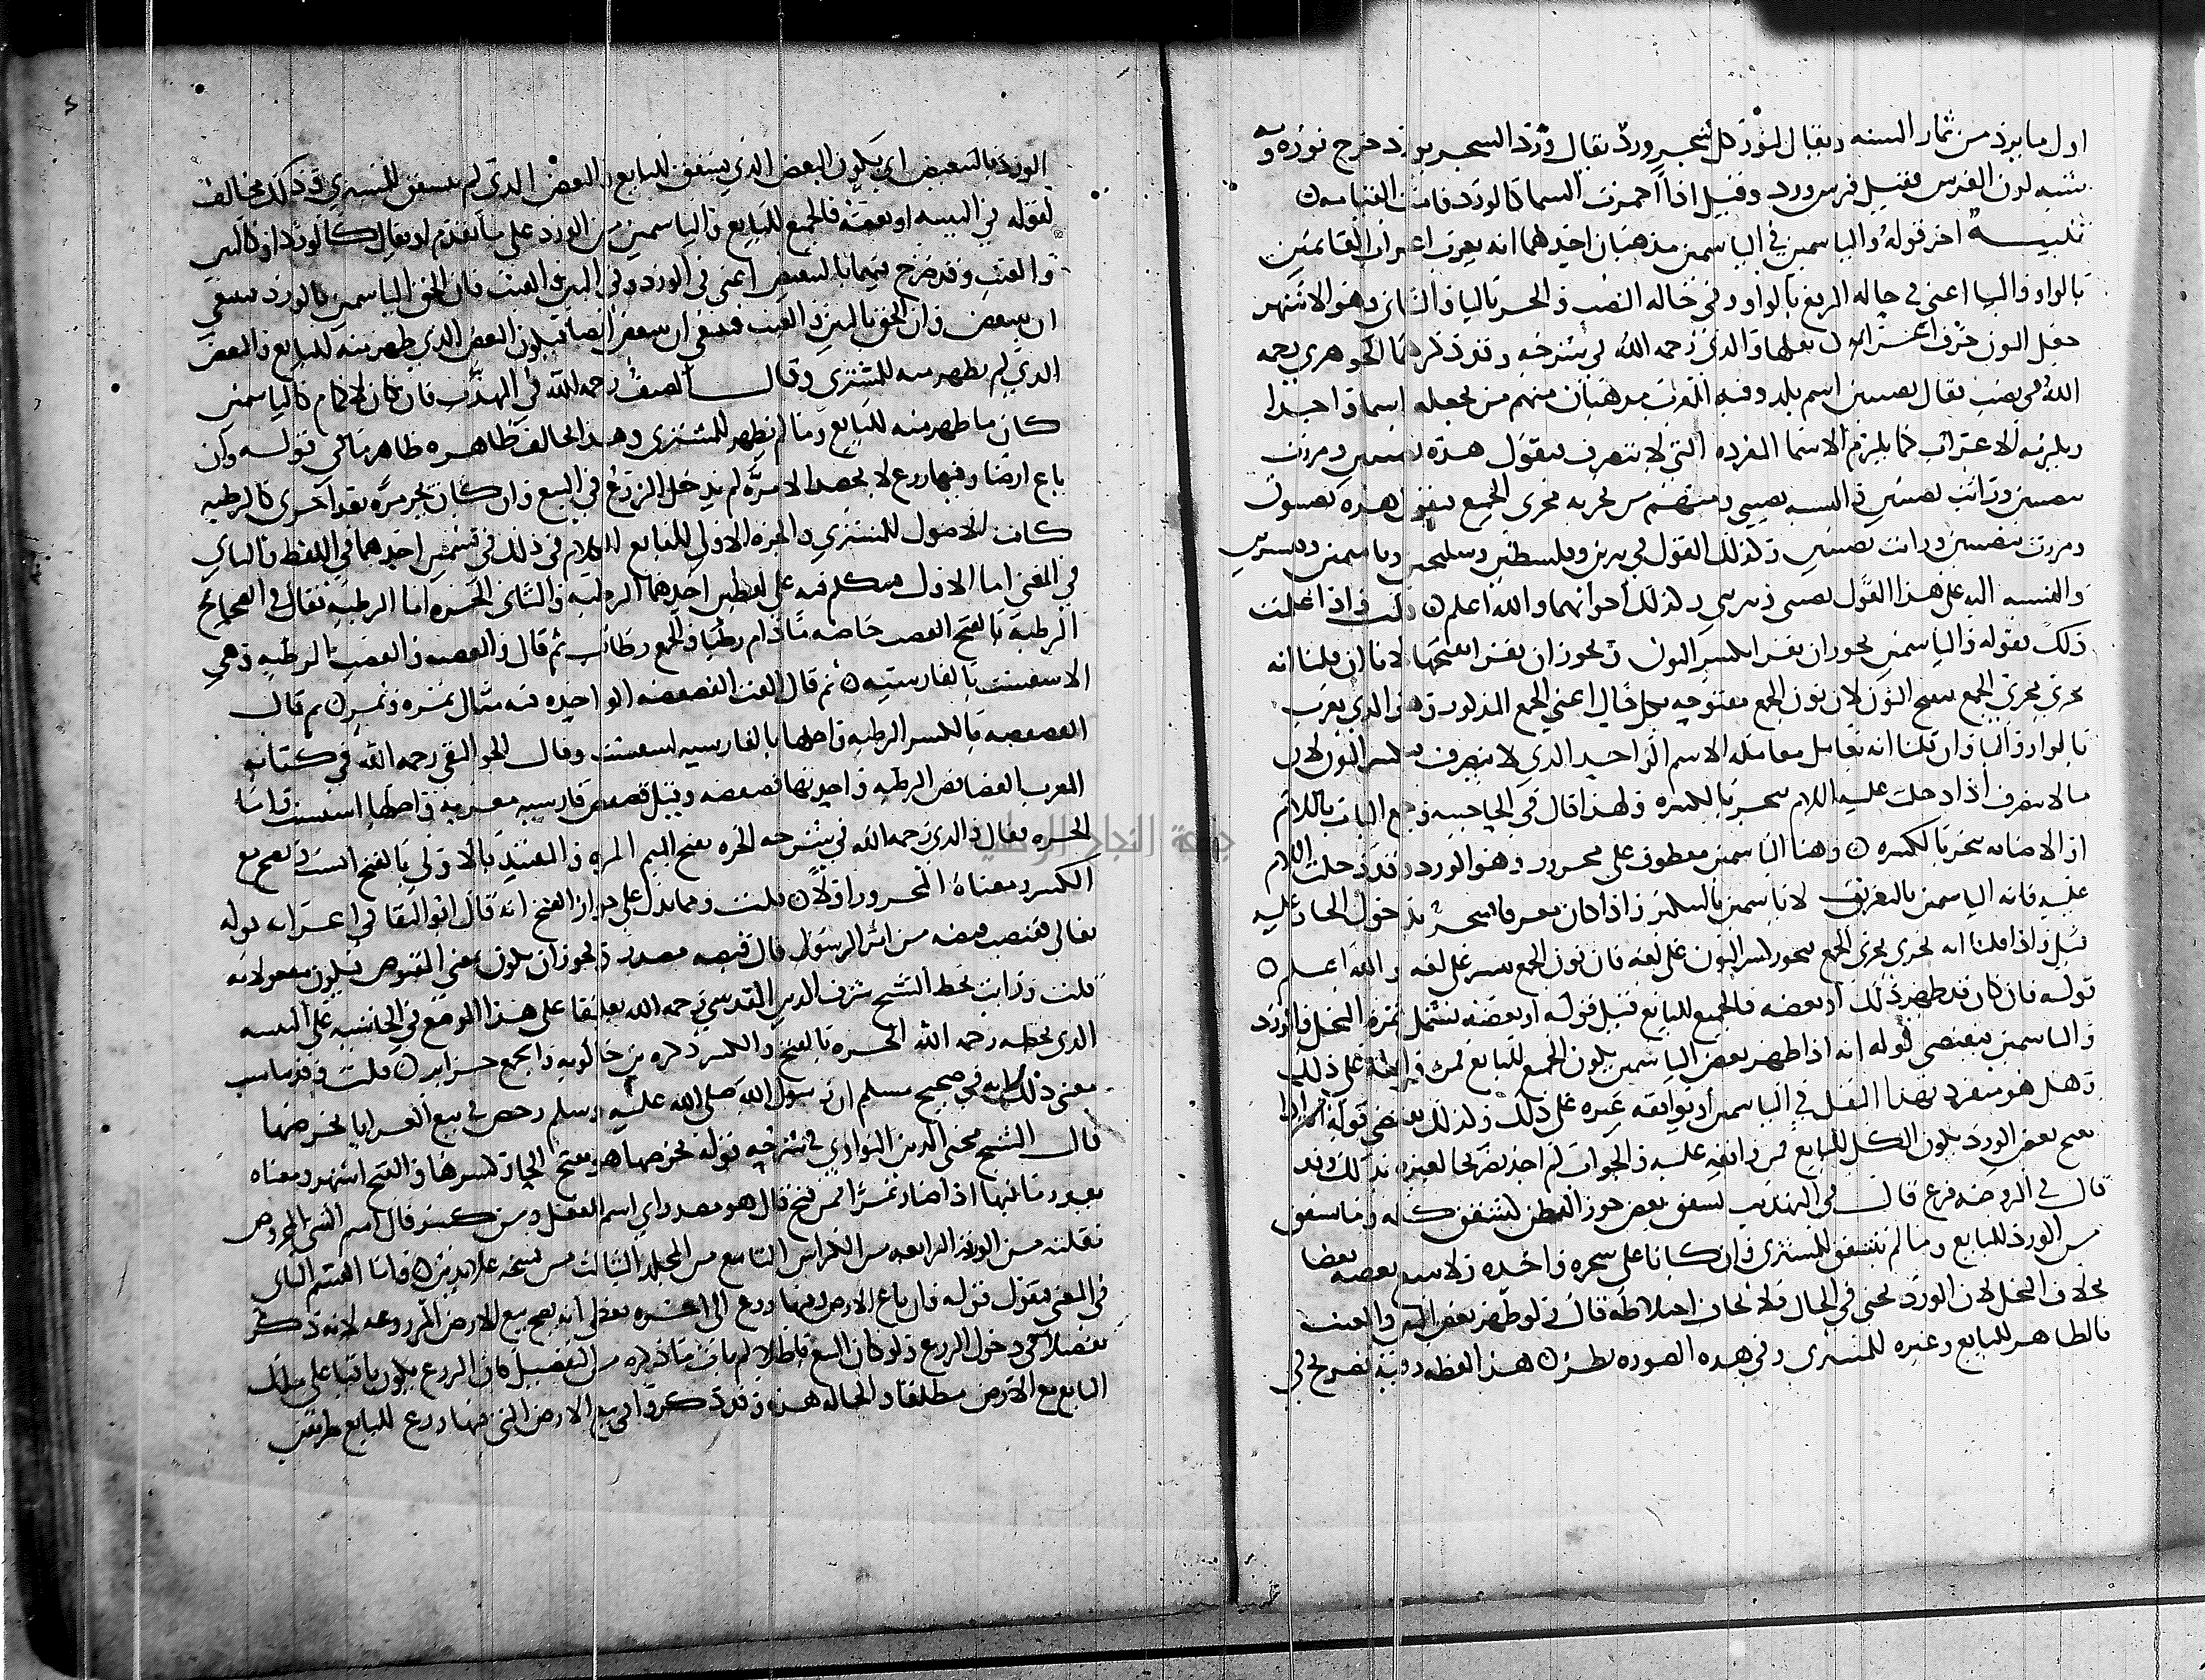 اول ما يرد من ثمار السنه ويقال لنور كل شجر ورد يقال ورد الشجر يورد خرج نوره وبه
شبه لون الفرس فقيل فرس ورد وقيل اذا احمرت السما كالورد قامت القيامه
تنبيه اخر قوله والياسمين في الياسمين مذهبان احدهما انه يعرب اعراب القايمين
بالواو واليا اعني في حاله الرفع بالواو وفي حاله النصب والجر باليا والثاني وهو الاشهر
جعل النون حرف اعراب نقلها والدي رحمه الله في شرحه وقد ذكرهما الجوهري رحمه
الله في نصب يقال نصيبين اسم بلد وفيه للعرب مذهبان منهم من يجعله اسما واحدا
ويلزمه الاعراب كما يلزم الاسما المفرده التي لا تنصرف فيقول هذه نصيبين ومررت
بنصيبين ورايت نصيبين والنسبه نصيبي ومنهم من يجريه مجرى الجمع فيقول هذه نصيبون
ومررت بنصيبين ورايت نصيبين وكذلك القول في يبرين وفلسطين وسيلحين وياسمين وقنسرين
والنسبه اليه على هذا القول نصيبيني ويبريني وكذلك اخواتهما والله اعلم قلت واذا علمت
ذلك فقوله والياسمين يجوز ان يقرا بكسر النون ويجوز ان يقرا بفتحها لانا ان قلنا انه
يجري مجرى الجمع فيفتح النون لان نون الجمع مفتوحه بكل حال اعني الجمع المذكور وهو الذي يعرب
بالواو واليا وان قلنا انه يعامل معامله الاسم الواحد الذي لا ينصرف فيكسر النون لان
ما لا ينصرف اذا دخلت عليه اللام ينجر بالكسره ولهذا قال في الحاجبيه وجميع الباب باللام
او الاضافه ينجر بالكسره وهنا الياسمين معطوف على مجرور وهو الورد وقد دخلت اللام
عليه فانه الياسمين بالتعريف لا ياسمين بالتنكير واذا كان معرفا ينجر بدخول الجار عليه
قيل واذا قلنا انه يجري مجرى الجمع يجوز كسر النون على لغه فان نون الجمع تكسر على لغه والله اعلم
قوله فان كان قد ظهر ذلك او بعضه فالجميع للبايع قيل قوله او بعضه يشمل ثمره النخل والورد
والياسمين فيقتضي قوله انه اذا ظهر بعض الياسمين يكون الجميع للبايع فمن وافقه على ذلك
وهل هو منفرد بهذا النقل في الياسمين او يوافقه غيره على ذلك وكذلك يقتضي قوله انه اذا
تفتح بعض الورد يكون الكل للبايع فمن وافقه عليه والجواب لم اجد تصريحا لغيره بذلك وقد
قال في الروضه فرع قال في التهذيب تشقق بعض جوز القطن كتشقق كله وما تشقق
من الورد للبايع وما لم يتشقق للمشتري وان كانا على شجره واحده ولا يتبع بعضه بعضا
بخلاف النخل لان الورد يجنى في الحال فلا يخاف اختلاطه قال ولو ظهر بعض التين والعنب
فالظاهر للبايع وغيره للمشتري وفي هذه الصوره نظر هذا لفظه وفيه تصريح في
الورد بالتبعيض اي يكون البعض الذي تشقق للبايع والبعض الذي لم يتشقق للمشتري وذلك مخالف
لقوله في التنبيه او بعضه فالجميع للبايع والياسمين من الورد على ما تقدم او يقال كالورد او كالتين
والعنب وقد خرج فيهما بالتبعيض اعني في الورد وفي التين والعنب فان الحق الياسمين بالورد فينبغي
ان يتبعض وان الحق بالتين والعنب فينبغي ان يتبعض ايضا فيكون البعض الذي ظهر منه للبايع والبعض
الذي لم يظهر منه للمشتري وقال المصنف رحمه الله في المهذب فان كان لاكمام كالياسمين
كان ما ظهر منه للبايع وما لم يظهر للمشتري وهذا يخالف ظاهره ظاهر ما في قوله وان
باع ارضا وفيها زرع لا يحصد الا مره لم يدخل الزرع في البيع وان كان يجز مره بعد اخرى كالرطبه
كانت الاصول للمشتري والجزه الاولى للبايع الكلام في ذلك في قسمين احدهما في اللفظ والثاني
في المعنى اما الاول فيتكلم فيه على لفظين احدهما الرطبه والثاني الجزه اما الرطبه فقال في الصحاح
الرطبه بالفتح القضب خاصه ما دام رطبا والجمع رطاب ثم قال والقضبه والقضب الرطبه وهي
الاسفست بالفارسيه ثم قال القت الفصفصه الواحده قته مثال تمره وتمر ثم قال
الفصفصه بالكسر الرطبه واصلها بالفارسيه اسفست وقال الجواليقي رحمه الله في كتابه
المعرب الفصافص الرطبه واحدتها فصفصه وقيل فصفص فارسيه معربه واصلها اسفست واما
الجزه فقال والدي رحمه الله في شرحه الجزه بفتح الجيم المره والتقييد بالاولى بالفتح انسب ويصح مع
الكسر ومعناه المجزور اولا قلت ومما يدل على جواز الفتح انه قال ابو البقا في اعراب قوله
تعالى فقبضت قبضه من اثر الرسول قال قبضه مصدر ويجوز ان يكون بمعنى المقبوض فيكون مفعولا به
قلت ورايت بخط الشيخ شرف الدين المقدسي رحمه الله تعليقا على هذا الموضع في الحاشيه على التنبيه
الذي بخطه رحمه الله الجزه بالفتح والكسر ذكره بن خالويه والجمع جزايز قلت وقريب من
معنى ذلك ما في صحيح مسلم ان رسول الله صلى الله عليه وسلم رخص في بيع العرايا بخرصها
قال الشيخ محيي الدين النواوي في شرحه قوله بخرصها هو بفتح الخا وكسرها والفتح اشهر ومعناه
بقدر ما فيها اذا صار تمرا فمن فتح قال هو مصدر اي اسم الفعل ومن كسر قال اسم الشي المخروص
نقلته من الورقه الرابعه من الكراس التاسع من المجلد الثالث من نسخه علا الدين واما القسم الثاني
في المعنى فنقول قوله وان باع الارض وفيها زرع الى اخره يعطي انه يصح بيع الارض المزروعه لانه ذكر
تفصيلا في دخول الزرع ولو كان البيع باطلا لم يات ما ذكره من التفصيل فان الزرع يكون باقيا على ملك
البايع مع الارض مطلقا والحاله هذه وقد ذكروا في بيع الارض التي فيها زرع للبايع طريقين